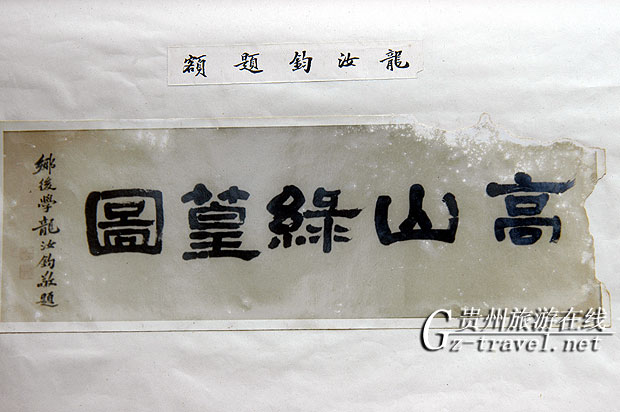 龍汝鈞題額
高山綠篁圖
鄉後學龍汝鈞敬題
贵州旅游在线
Gz-travel.net